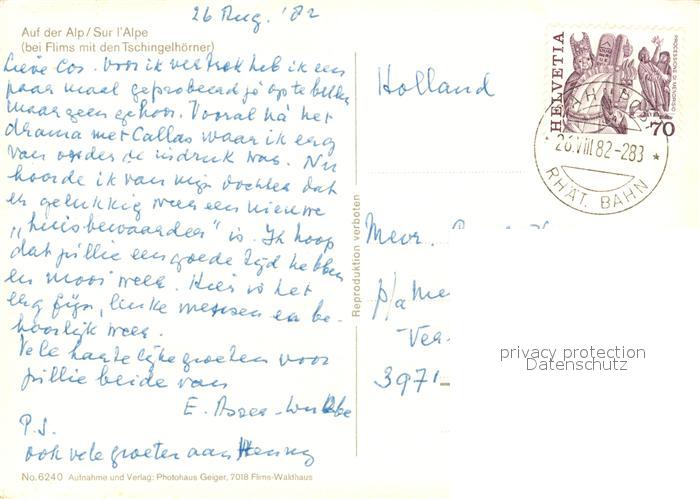 26 Aug. '82
Auf der Alp / Sur l'Alpe
(bei Flims mit den Tschingelhörner)
Lieve Cos. Voor ik vertrok heb ik een
paar maal geprobeerd je op te bellen
maar geen gehoor. Vooral na het
drama met Callas waar ik erg
van onder de indruk was. Nu
hoorde ik van mijn dochter dat
er gelukkig weer een nieuwe
"huisbewaarder" is. Ik hoop
dat jullie een goede tijd hebben
en mooi weer. Hier is het
erg fijn, leuke mensen en be-
hoorlijk weer.
Vele hartelijke groeten voor
jullie beide van
E.
P.S.
ook vele groeten aan Henny
No. 6240 Aufnahme und Verlag: Photohaus Geiger, 7018 Flims-Waldhaus
Reproduktion verboten
Holland
Mevr.
p/a
3971
HELVETIA
PROCESSIONE DI MENDRISIO
70
26.VIII.82-283
RHÄT. BAHN
privacy protection
Datenschutz